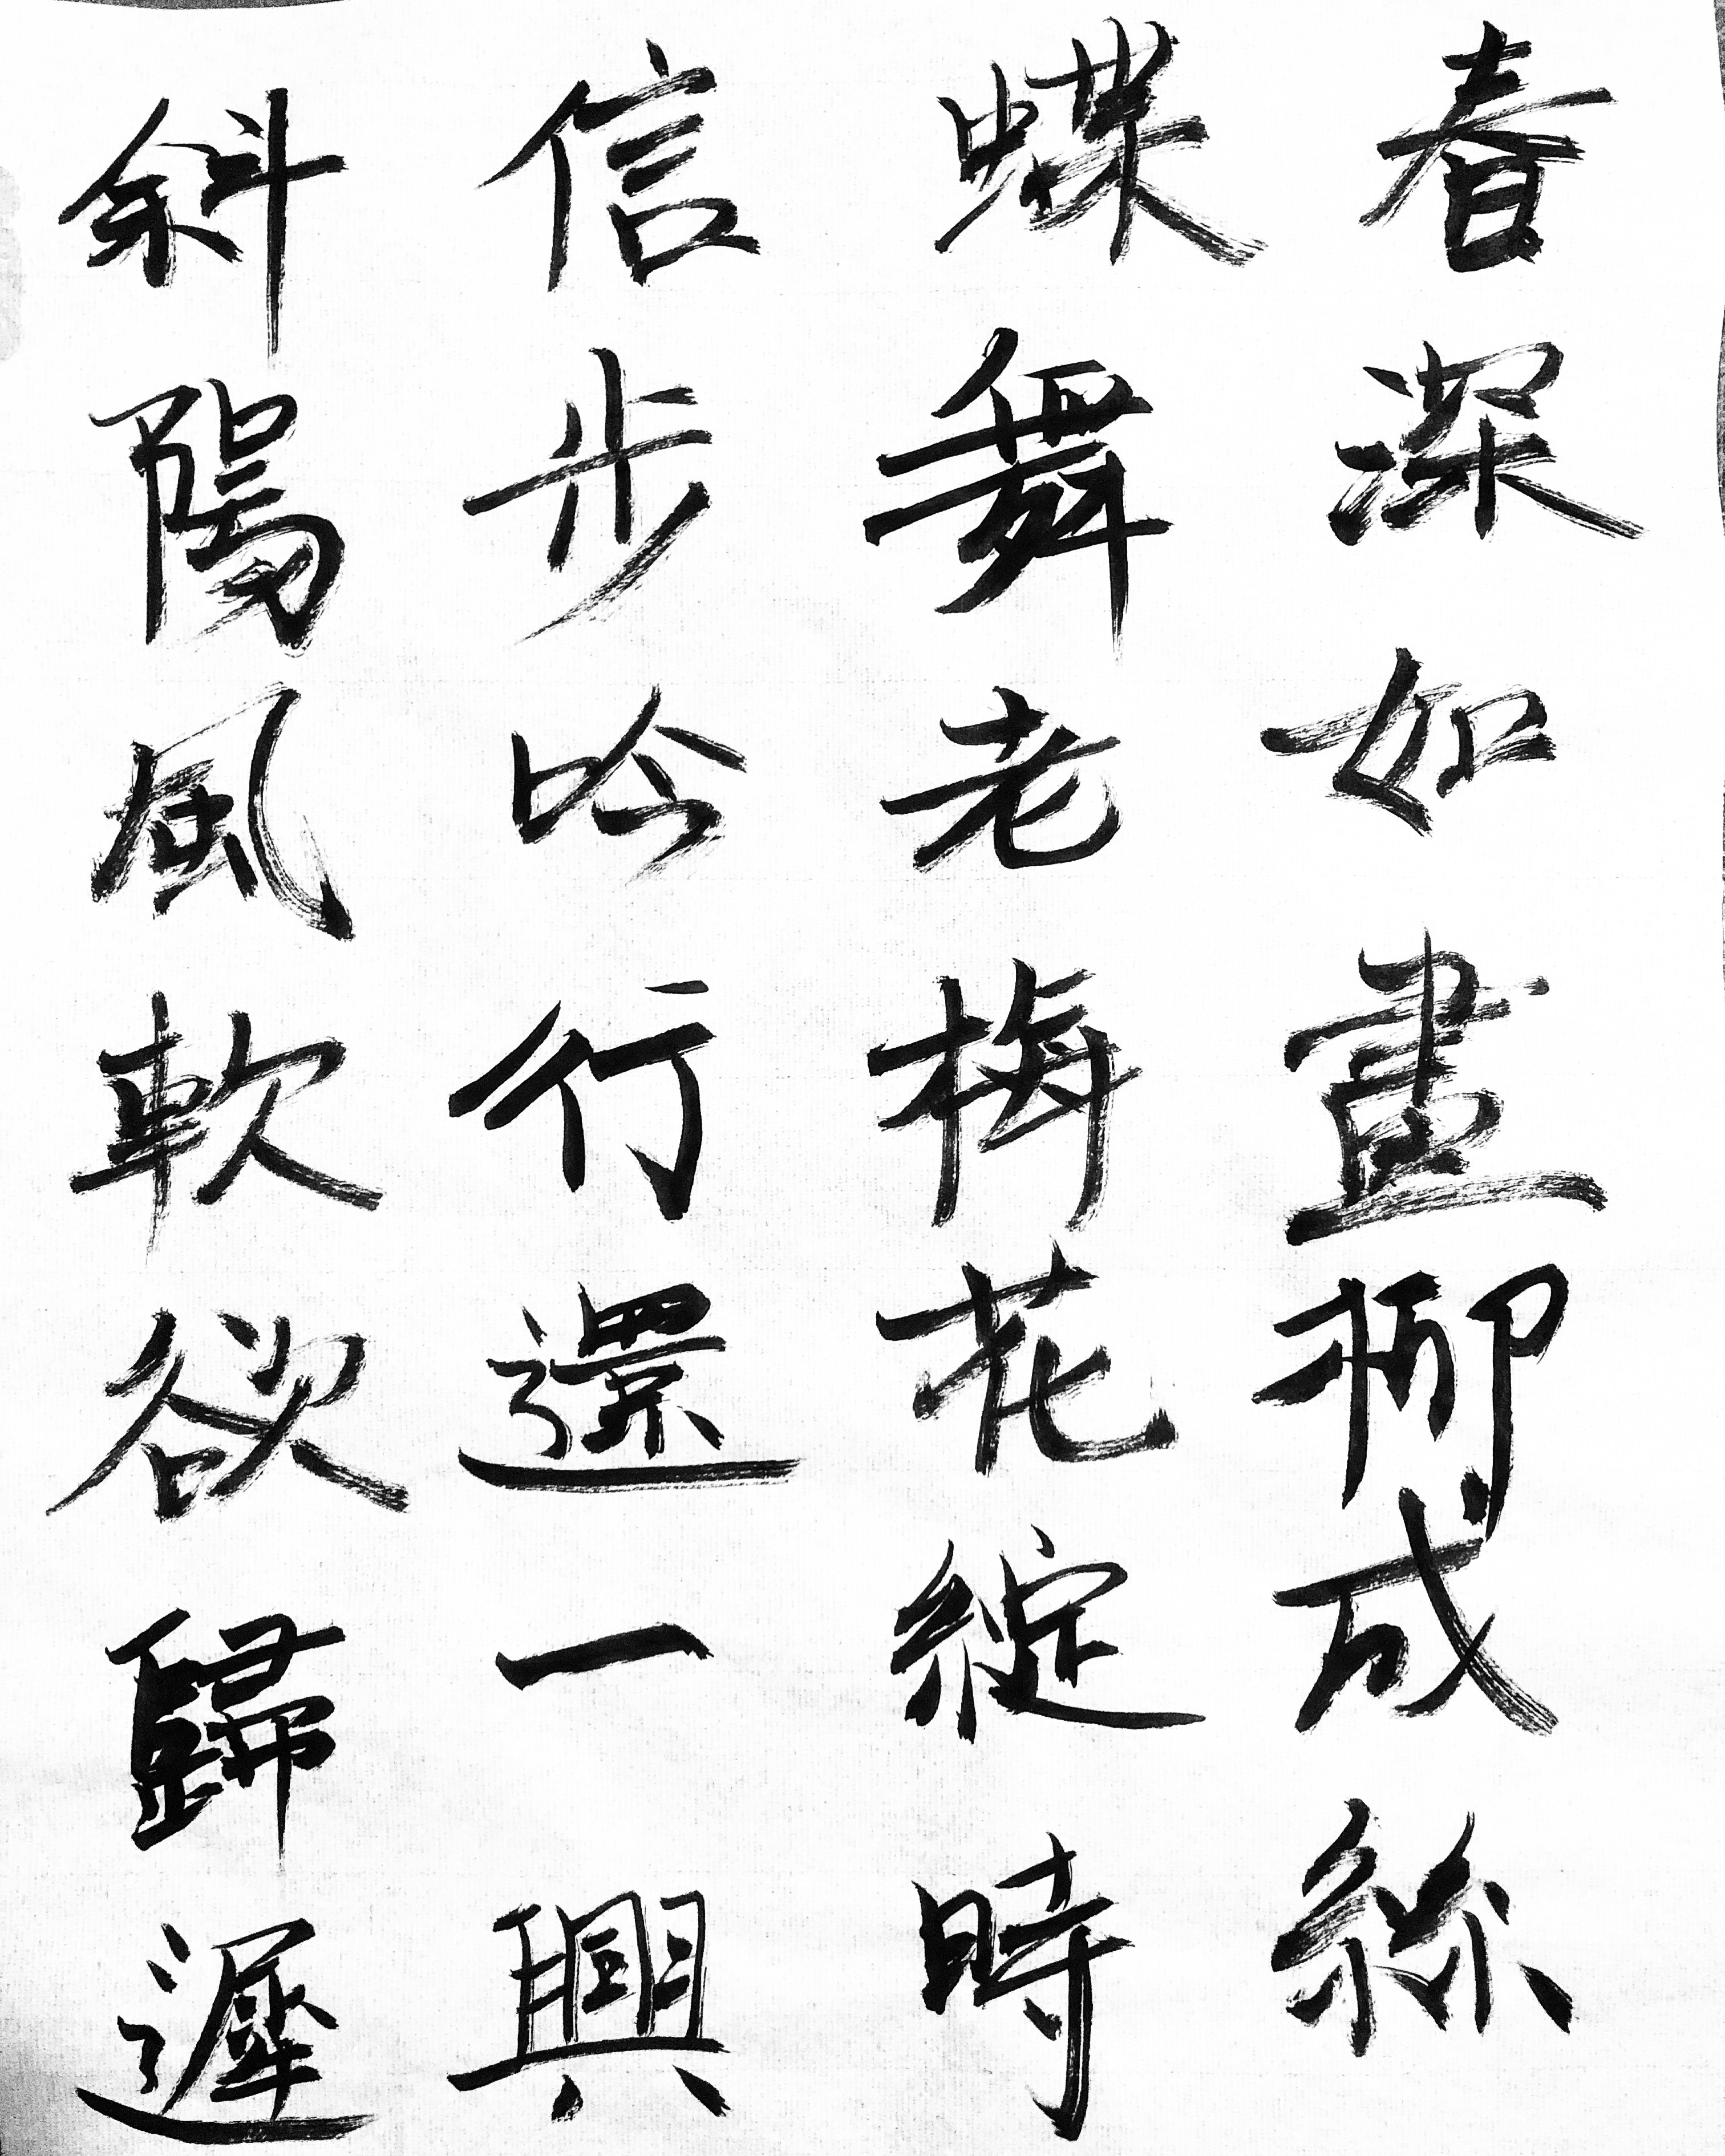 春深如畫柳成絲
蝶舞老梅花綻時
信步吟行還一興
斜陽風軟欲歸遲